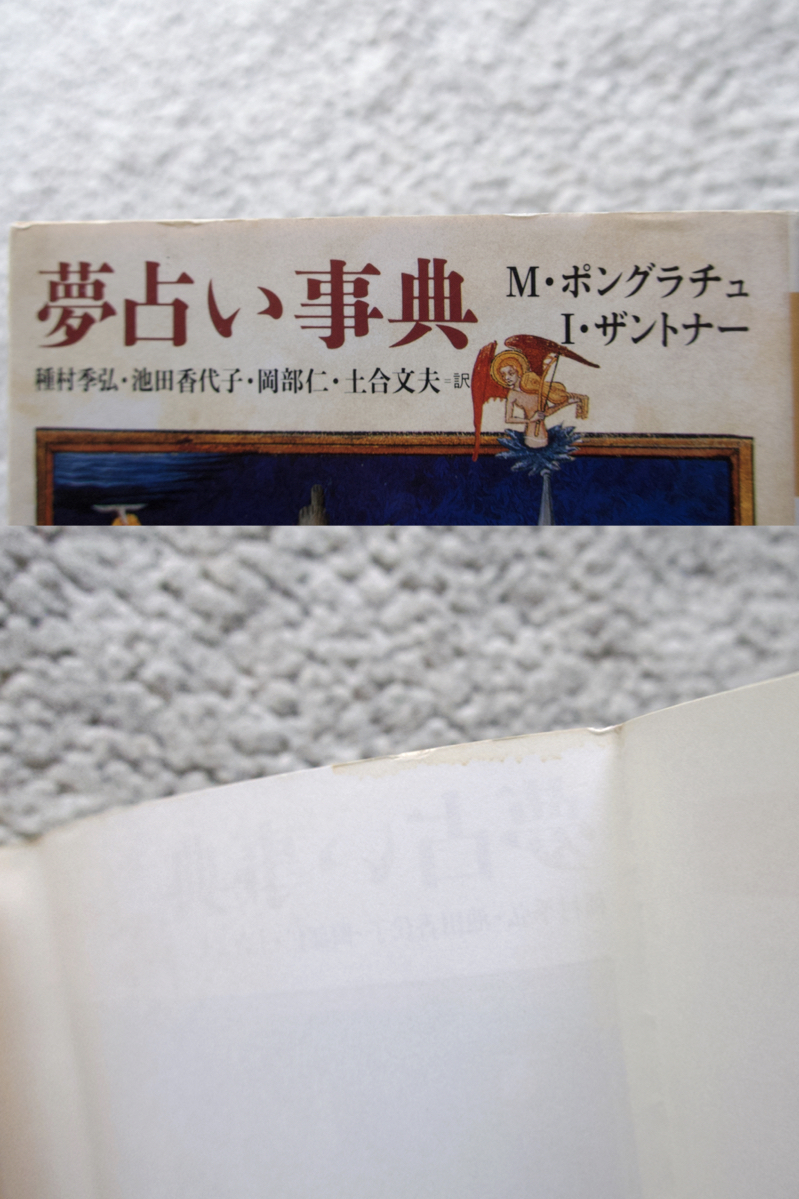 夢占い事典
M・ポングラチュ
I・ザントナー
種村季弘・池田香代子・岡部仁・土合文夫=訳